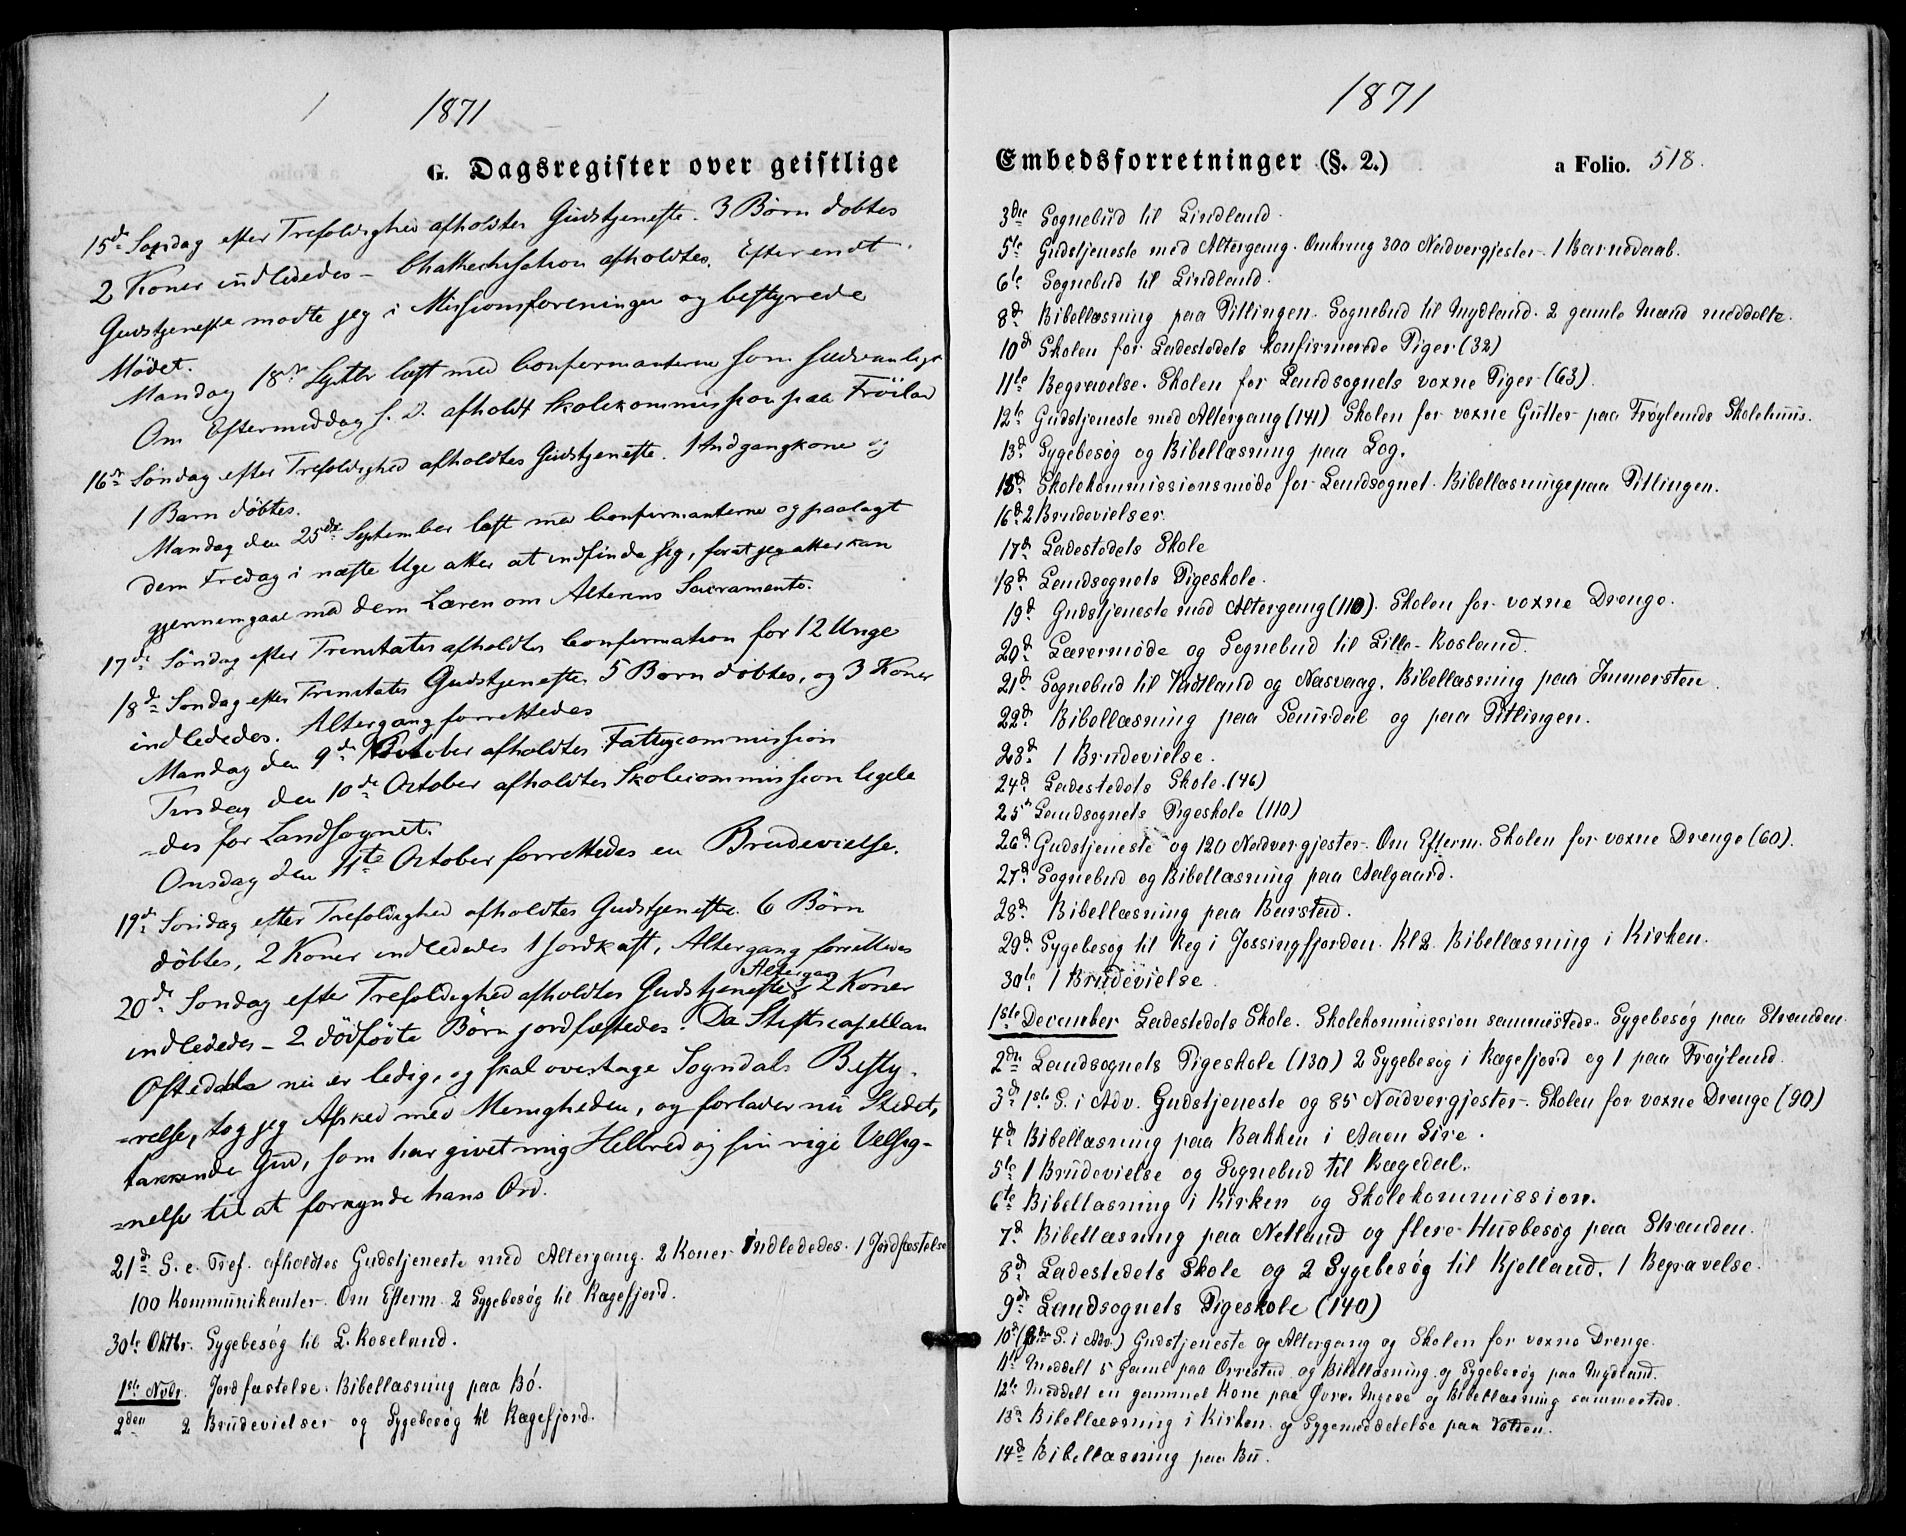 1871
G. Dagsregister over geistlige
15de Søndag efter Trefoldighed afholdtes Gudstjeneste. 3 Børn døbtes
2 Koner indlededes – Chatkechisation afholdtes. Efter endt
Gudstjeneste mødte jeg i Missionsforeningen og bestyrede
Mødet.
Mandag 18de Septbr læst med Confirmanterne som sædvanligt
Om Eftermiddag s. D. afholdt Skolekommission paa Frøiland
16de Søndag efter Trefoldighed afholdtes Gudstjeneste. 1 Indgangkone og
1 Barn døbtes.
Mandag den 25de September læst med Confirmanterne og paalagt
dem Fredag i næste Uge atter at indfinde sig, forat jeg atter kan
gjennemgaae med dem Læren om Alterens Sacramente.
17de Søndag efter Trinitatis afholdtes Confirmation for 12 Unge
18de Søndag efter Trinitatis Gudstjeneste 5 Børn døbtes, og 3 Koner
indlededes. Altergang forrettedes
Mandag den 9de October afholdtes Fattigcommission
Tirsdag den 10de October afholdtes Skolecommission ligele
=des for Landsognet.
Onsdag den 11te October forrettedes en Brudevielse.
19de Søndag efter Trefoldighed afholdtes Gudstjeneste. 6 Børn
døbtes, 2 Koner indlededes 1 Jordkast, Altergang forrettedes
Altergang
20de Søndag efter Trefoldighed afholdtes Gudstjeneste 2 Koner
indlededes – 2 dødfødte Børn jordfæstedes. Da Stiftscapellan
Oftedahl nu er ledig, og skal overtage Sogndals Besty-
=relse, tog jeg Afsked med Menigheden, og forlader nu Stedet,
takkende Gud, som har givet mig Helbred og sin rige Velsig-
=nelse til at forkynde hans Ord.
21de S. e. Tref. afholdtes Gudstjeneste med Altergang. 2 Koner indlededes. 1 Jordfæstelse
100 Kommunikanter. Om Efterm. 2 Sygebesøg til Rægefjord.
30te Oktbr. Sygebesøg til L. Roseland.
1ste Novbr. Jordfæstelse. Bibellæsning paa Bö.
2den 2 Brudevielser og Sygebesøg til Rægefjord.
1871
Embedsforretninger (§. 2.) a Folio. 518.
3die Sognebud til Lindland.
5te Gudstjeneste med Altergang. Omkring 300 Nadvergjester. 1 Barnedaab.
6te Sognebud til Lindland.
8de Bibellæsning paa Titlingen. Sognebud til Mydland. 2 gamle Mænd meddelte.
10de Skolen for Ladestedets konfirmerede Piger (32)
11te Begravelse. Skolen for Landsognets voxne Piger (63).
12te Gudstjeneste med Altergang (141) Skolen for voxne Gutter paa Frøylands Skolehuus.
13de Sygebesøg og Bibellæsning paa Log.
15de Skolekommissionsmøde for Landsognet. Bibellæsning paa Titlingen.
16de 2 Brudevielser.
17de Ladestedets Skole
18de Landsognets Pigeskole.
19de Gudstjeneste med Altergang (110). Skolen for voxne Drenge.
20de Lærermøde og Sognebud til Lille-Rosland.
21de Sognebud til Hidtland og Nasvaag. Bibellæsning paa Immersten
22de Bibellæsning paa Lausdal og paa Titlingen.
23de 1 Brudevielse.
24de Ladestedets Skole. (46)
25de Landsognets Pigeskole (110)
26de Gudstjeneste og 120 Nadvergjester. Om Efterm. Skolen for voxne Drenge (60).
27de Sognebud og Bibellæsning paa Aalgaard.
28de Bibellæsning paa Barstad.
29de Sygebesøg til Reg i Jossingfjorden. Kl 2 Bibellæsning i Kirken.
30te 1 Brudevielse.
1ste December Ladestedets Skole. Skolekommission sammesteds. Sygebesøg paa Stranden
2den Landsognets Pigeskole (130) 2 Sygebesøg i Rægefjord og 1 paa Frøyland.
3de 1ste S. i Adv. Gudstjeneste og 85 Nadvergjester. Skolen for voxne Drenge (90)
4de Bibellæsning paa Bakken i Aaen Sire.
5te 1 Brudevielse og Sognebud til Rægedal.
6te Bibellæsning i Kirken og Skolekommission.
7de Bibellæsning paa Netland og flere Husbesøg paa Stranden.
8de Ladestedets Skole og 2 Sygebesøg til Kjelland. 1 Begravelse.
9de Landsognets Pigeskole (140)
10de (2den S. i Adv.) Gudstjeneste og Altergang og Skolen for voxne Drenge.
11te Meddelt 5 Gamle paa Orrestad og Bibellæsning og Sygebesøg paa Mydland.
12te Meddelt en gammel Kone paa Øvre Mysse og Bibellæsning sammesteds.
13de Bibellæsning i Kirken og Sygemeddelelse paa Volden.
14de Bibellæsning paa Bu.